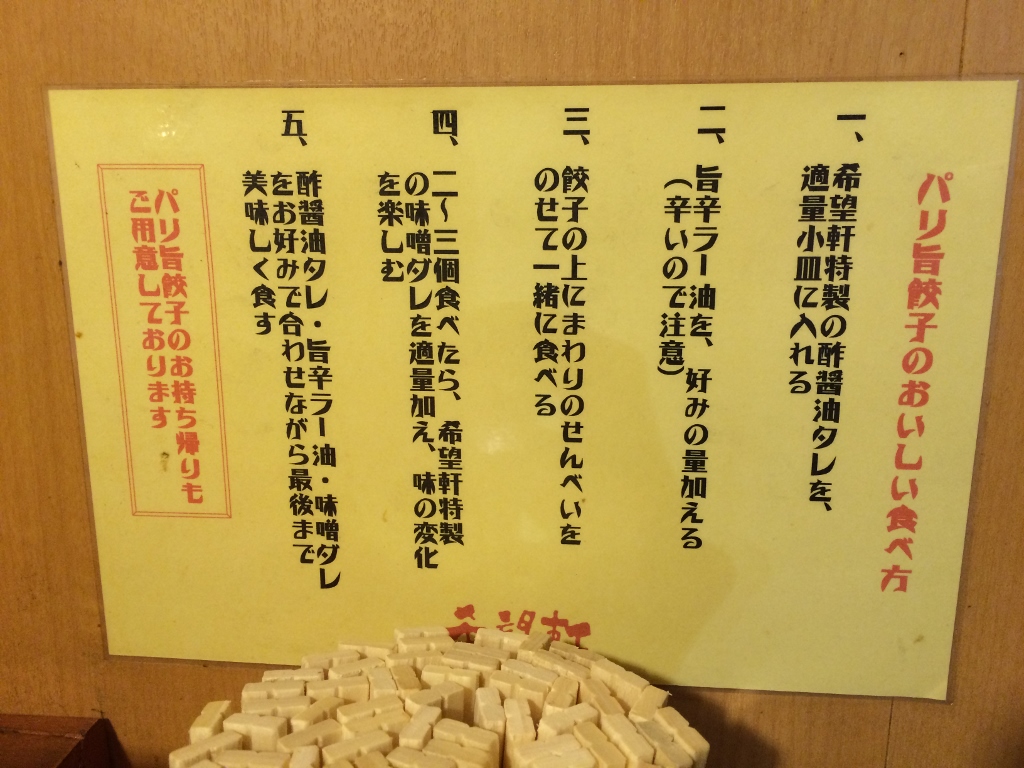 パリ旨餃子のおいしい食べ方
一、希望軒特製の酢醤油タレを、
適量小皿に入れる
二、旨辛ラー油を、好みの量加える
（辛いので注意）
三、餃子の上にまわりのせんべいを
のせて一緒に食べる
四、二〜三個食べたら、希望軒特製
の味噌ダレを適量加え、味の変化
を楽しむ
五、酢醤油タレ・旨辛ラー油・味噌ダレ
をお好みで合わせながら最後まで
美味しく食す
パリ旨餃子のお持ち帰りも
ご用意しております
希望軒